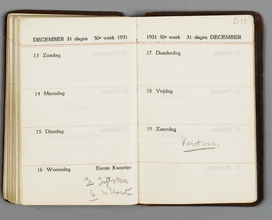 DECEMBER 31 dagen 50e week 1931
13 Zondag
14 Maandag
15 Dinsdag
16 Woensdag Eerste Kwartier
1931 50e week 31 dagen DECEMBER
17 Donderdag
18 Vrijdag
19 Zaterdag